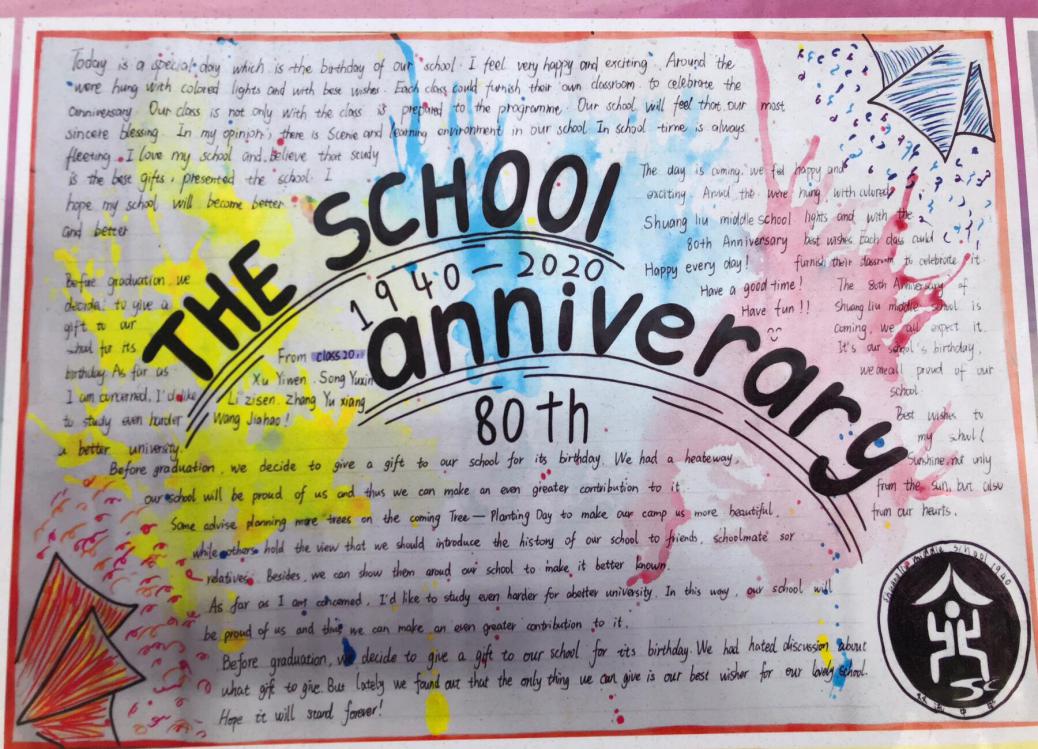 Today is a special day which is the birthday of our school. I feel very happy and exciting. Around the
were hung with colored lights and with best wishes. Each class could furnish their own classroom to celebrate the
anniversary. Our class is not only with the class is prepared to the programme. Our school will feel that our most
sincere blessing. In my opinion, there is Scenic and learning environment in our school. In school time is always
fleeting. I love my school and believe that study
is the best gifts, presented the school. I
hope my school will become better
and better
THE SCHOOL
1940—2020
anniverary
80th
The day is coming. we feel happy and
exciting Around the were hung with colored
Shuang liu middle school lights and with the
80th Anniversary best wishes. Each class could
Happy every day! furnish their classroom to celebrate it.
Have a good time! The 80th Anniversary of
Have fun!! Shuang liu middle school is
coming, we all expect it.
It's our school's birthday,
we are all proud of our
school.
Best wishes to
my school!
Sunshine not only
from the sun, but also
from our hearts.
Before graduation, we
decide to give a
gift to our
school for its
birthday. As far as
I am concerned, I'd like
to study even harder
a better university.
From class 20
Xu Yiwen. Song Yuxin
Li zisen. Zhang Yu xiang
Wang Jiahao!
Before graduation, we decide to give a gift to our school for its birthday. We had a heateway.
our school will be proud of us and thus we can make an even greater contribution to it.
Some advise planning more trees on the coming Tree—Planting Day to make our camp us more beautiful.
while others hold the view that we should introduce the history of our school to friends, schoolmate sor
relatives. Besides, we can show them aroud our school to make it better known.
As far as I am concerned, I'd like to study even harder for abetter university. In this way, our school will
be proud of us and thus we can make an even greater contribution to it.
Before graduation, we decide to give a gift to our school for its birthday. We had hated discussion about
what gift to give. But lately we found out that the only thing we can give is our best wisher for our lovely school.
Hope it will stand forever!
middle school 1940
SC